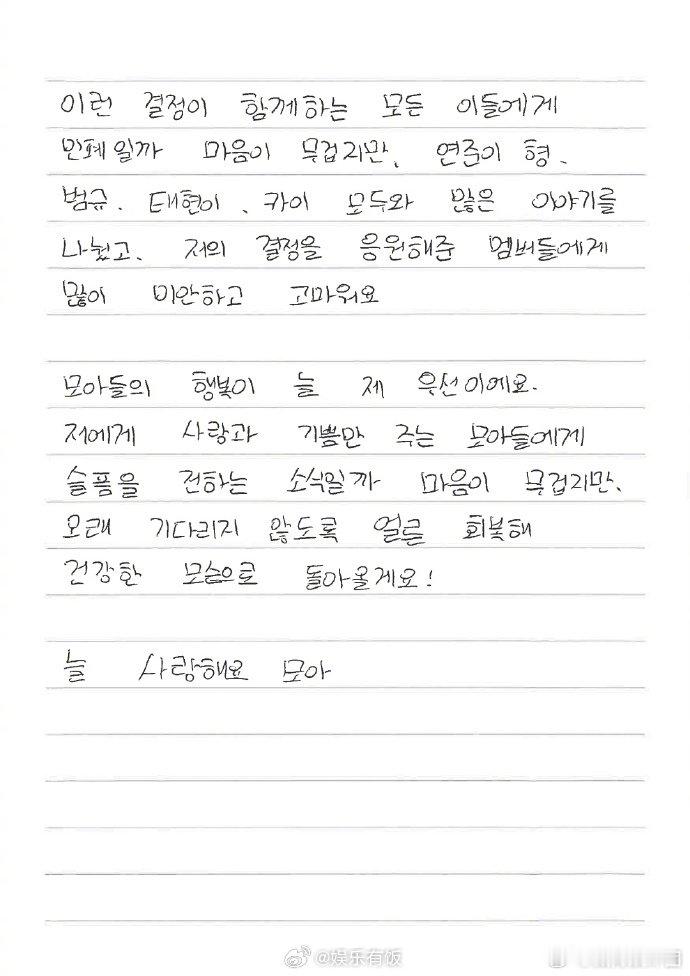 이런 결정이 함께하는 모든 이들에게
민폐일까 마음이 무겁지만, 연준이 형,
범규, 태현이, 카이 모두와 많은 이야기를
나눴고, 저의 결정을 응원해준 멤버들에게
많이 미안하고 고마워요
모아들의 행복이 늘 제 우선이에요.
저에게 사랑과 기쁨만 주는 모아들에게
슬픔을 전하는 소식일까 마음이 무겁지만,
오래 기다리지 않도록 얼른 회복해
건강한 모습으로 돌아올게요!
늘 사랑해요 모아
@娱乐有饭